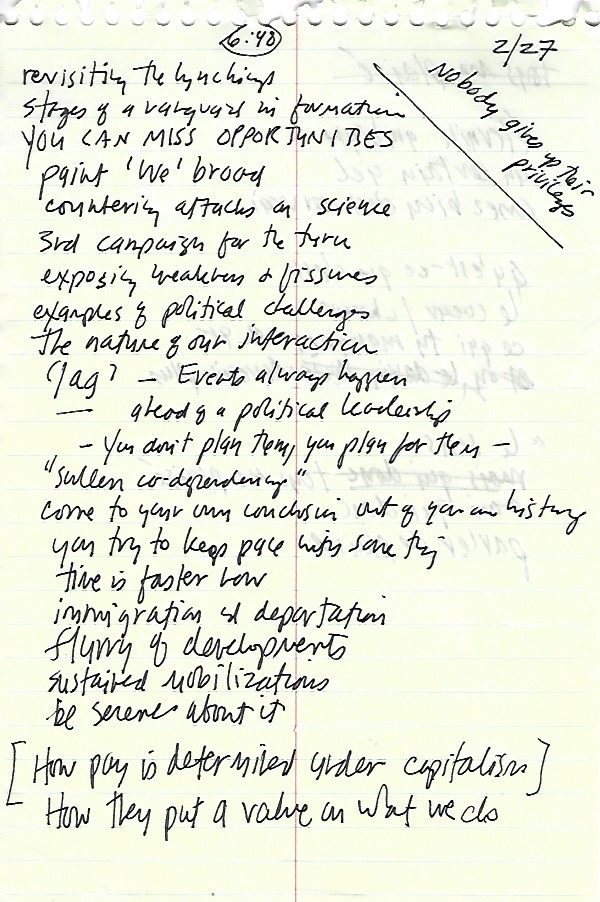 6:48
2/27
Nobody gives up their
privileges
revisiting the lynchings
stages of a vanguard in formation
YOU CAN MISS OPPORTUNITIES
paint 'We' broad
countering attacks on science
3rd campaign for the turn
exposing weakness & fissures
examples of political challenges
The nature of our interaction
'lag' — Events always happen
— ahead of a political leadership
- You don't plan them, you plan for them -
"sullen co-dependency"
come to your own conclusion out of your own history
you try to keep pace with something
time is faster now
immigration and deportation
flurry of developments
sustained mobilizations
be serene about it
[How pay is determined under capitalism]
How they put a value on what we do